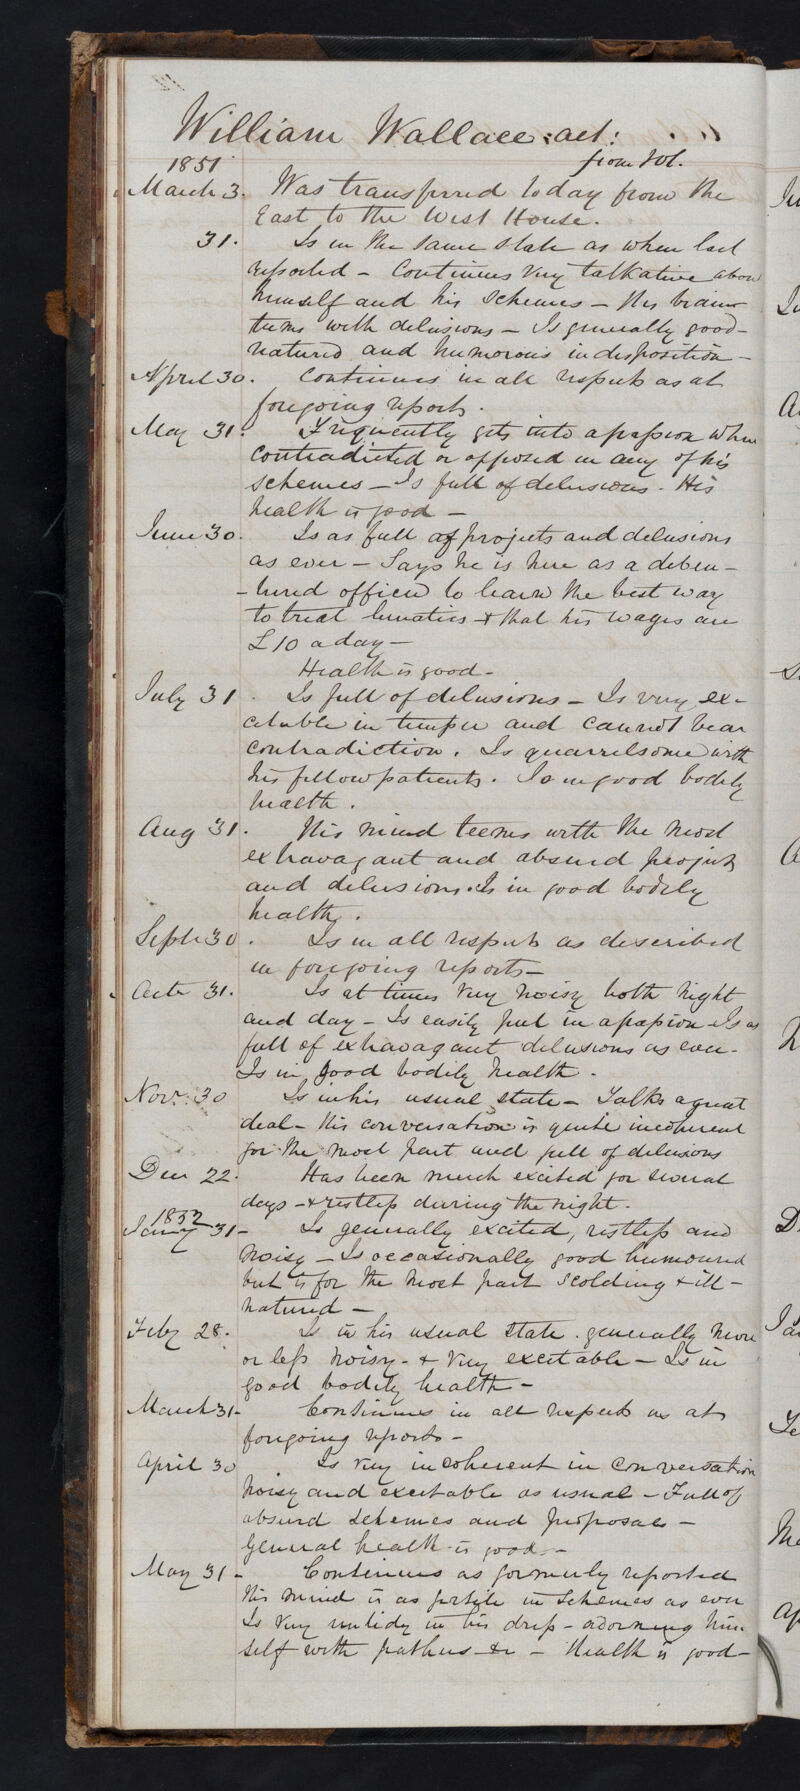 William Wallace aet:
from vol.
1851
March 3. Was transferred today from the
East to the West House.
31. Is in the same state as when last
reported - Continues very talkative about
himself and his schemes - His brain
teems with delusions - Is generally good-
natured and humorous in disposition -
April 30. Continues in all respects as at
foregoing reports.
May 31. Frequently gets into a passion when
contradicted or opposed in any of his
schemes - Is full of delusions. His
health is good -
June 30. Is as full of projects and delusions
as ever - Says he is here as a deben-
-tured officer to learn the best way
to treat lunatics & that his wages are
£10 a day -
Health is good -
July 31. Is full of delusions - Is very ex-
citable in temper and cannot bear
contradiction. Is quarrelsome with
his fellow patients. Is in good bodily
health.
Aug 31. His mind teems with the most
extravagant and absurd projects
and delusions. Is in good bodily
health.
Septr 30. Is in all respects as described
in foregoing reports -
Octr 31. Is at times very noisy both night
and day - Is easily put in a passion - Is as
full of extravagant delusions as ever.
Is in good bodily health.
Novr. 30 Is in his usual state - Talks a great
deal - His conversation is quite incoherent
for the most part and full of delusions
Decr 22. Has been much excited for several
days - & restless during the night.
1852
Jany 31 - Is generally excited, restless and
noisy - Is occasionally good humoured
but is for the most part scolding & ill-
natured -
Feby 28. Is in his usual state. generally more
or less noisy - & very excitable - Is in
good bodily health -
March 31 - Continues in all respects as at
foregoing reports -
April 30 Is very incoherent in conversation
noisy and excitable as usual - Full of
absurd schemes and proposals -
General health is good -
May 31 - Continues as formerly reported
His mind is as fertile in schemes as ever
Is very untidy in his dress - adorning him
self with feathers &c - Health is good -